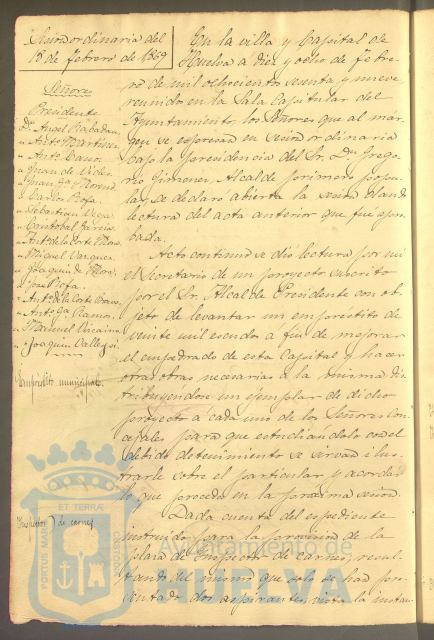 Sesion ordinaria del
18 de Febrero de 1869
Señores
Presidente
Dn Angel Rabadan
" Anto Martinez
" Anto Cano
" Juan de
" Juan
" Carlos Rofa
" Sebastian Vega
" Cristobal Garcia
" Anto de la Corte
" Miguel Vazquez
" Joaquin de
" Jose Rofa
" Anto de la Corte Bravo
" Anto Ga Ramos
" Manuel Vizcaino
" Joaquin Vallejo
Empréstito municipal
En la villa y Capital de
Huelva a diez y ocho de Febre
ro de mil ochocientos sesenta y nueve
reunidos en la Sala Capitular del
Ayuntamiento, los Señores que al már-
gen se expresan en sesion ordinaria
bajo la presidencia del Sr. Dn Grego-
rio Gimenez, Alcalde primero popu-
lar, se declaró abierta la sesion dando
lectura del acta anterior que fue apro-
bada.
Acto continuo se dió lectura por mi
el Secretario de un proyecto suscrito
por el Sr. Alcalde Presidente con ob-
jeto de levantar un empréstito de
veinte mil escudos a fin de mejorar
el empedrado de esta Capital y hacer
otras obras necesarias a la misma dis
tribuyendose un ejemplar de dicho
proyecto a cada uno de los Señores Con-
cejales para que estudiandolo con el
debido detenimiento se sirvan ilus-
trarle sobre el particular y acordar
lo que proceda en la proxima sesion.
Inspector de carnes
Dada cuenta del espediente
instruido para la provision de la
plaza de Inspector de carnes, resul-
tando del mismo que solo se han pre-
sentado dos aspirantes, vista la instan-
PORTUS MARIS ET TERRÆ CUSTODIA
Ayuntamiento de
HUELVA